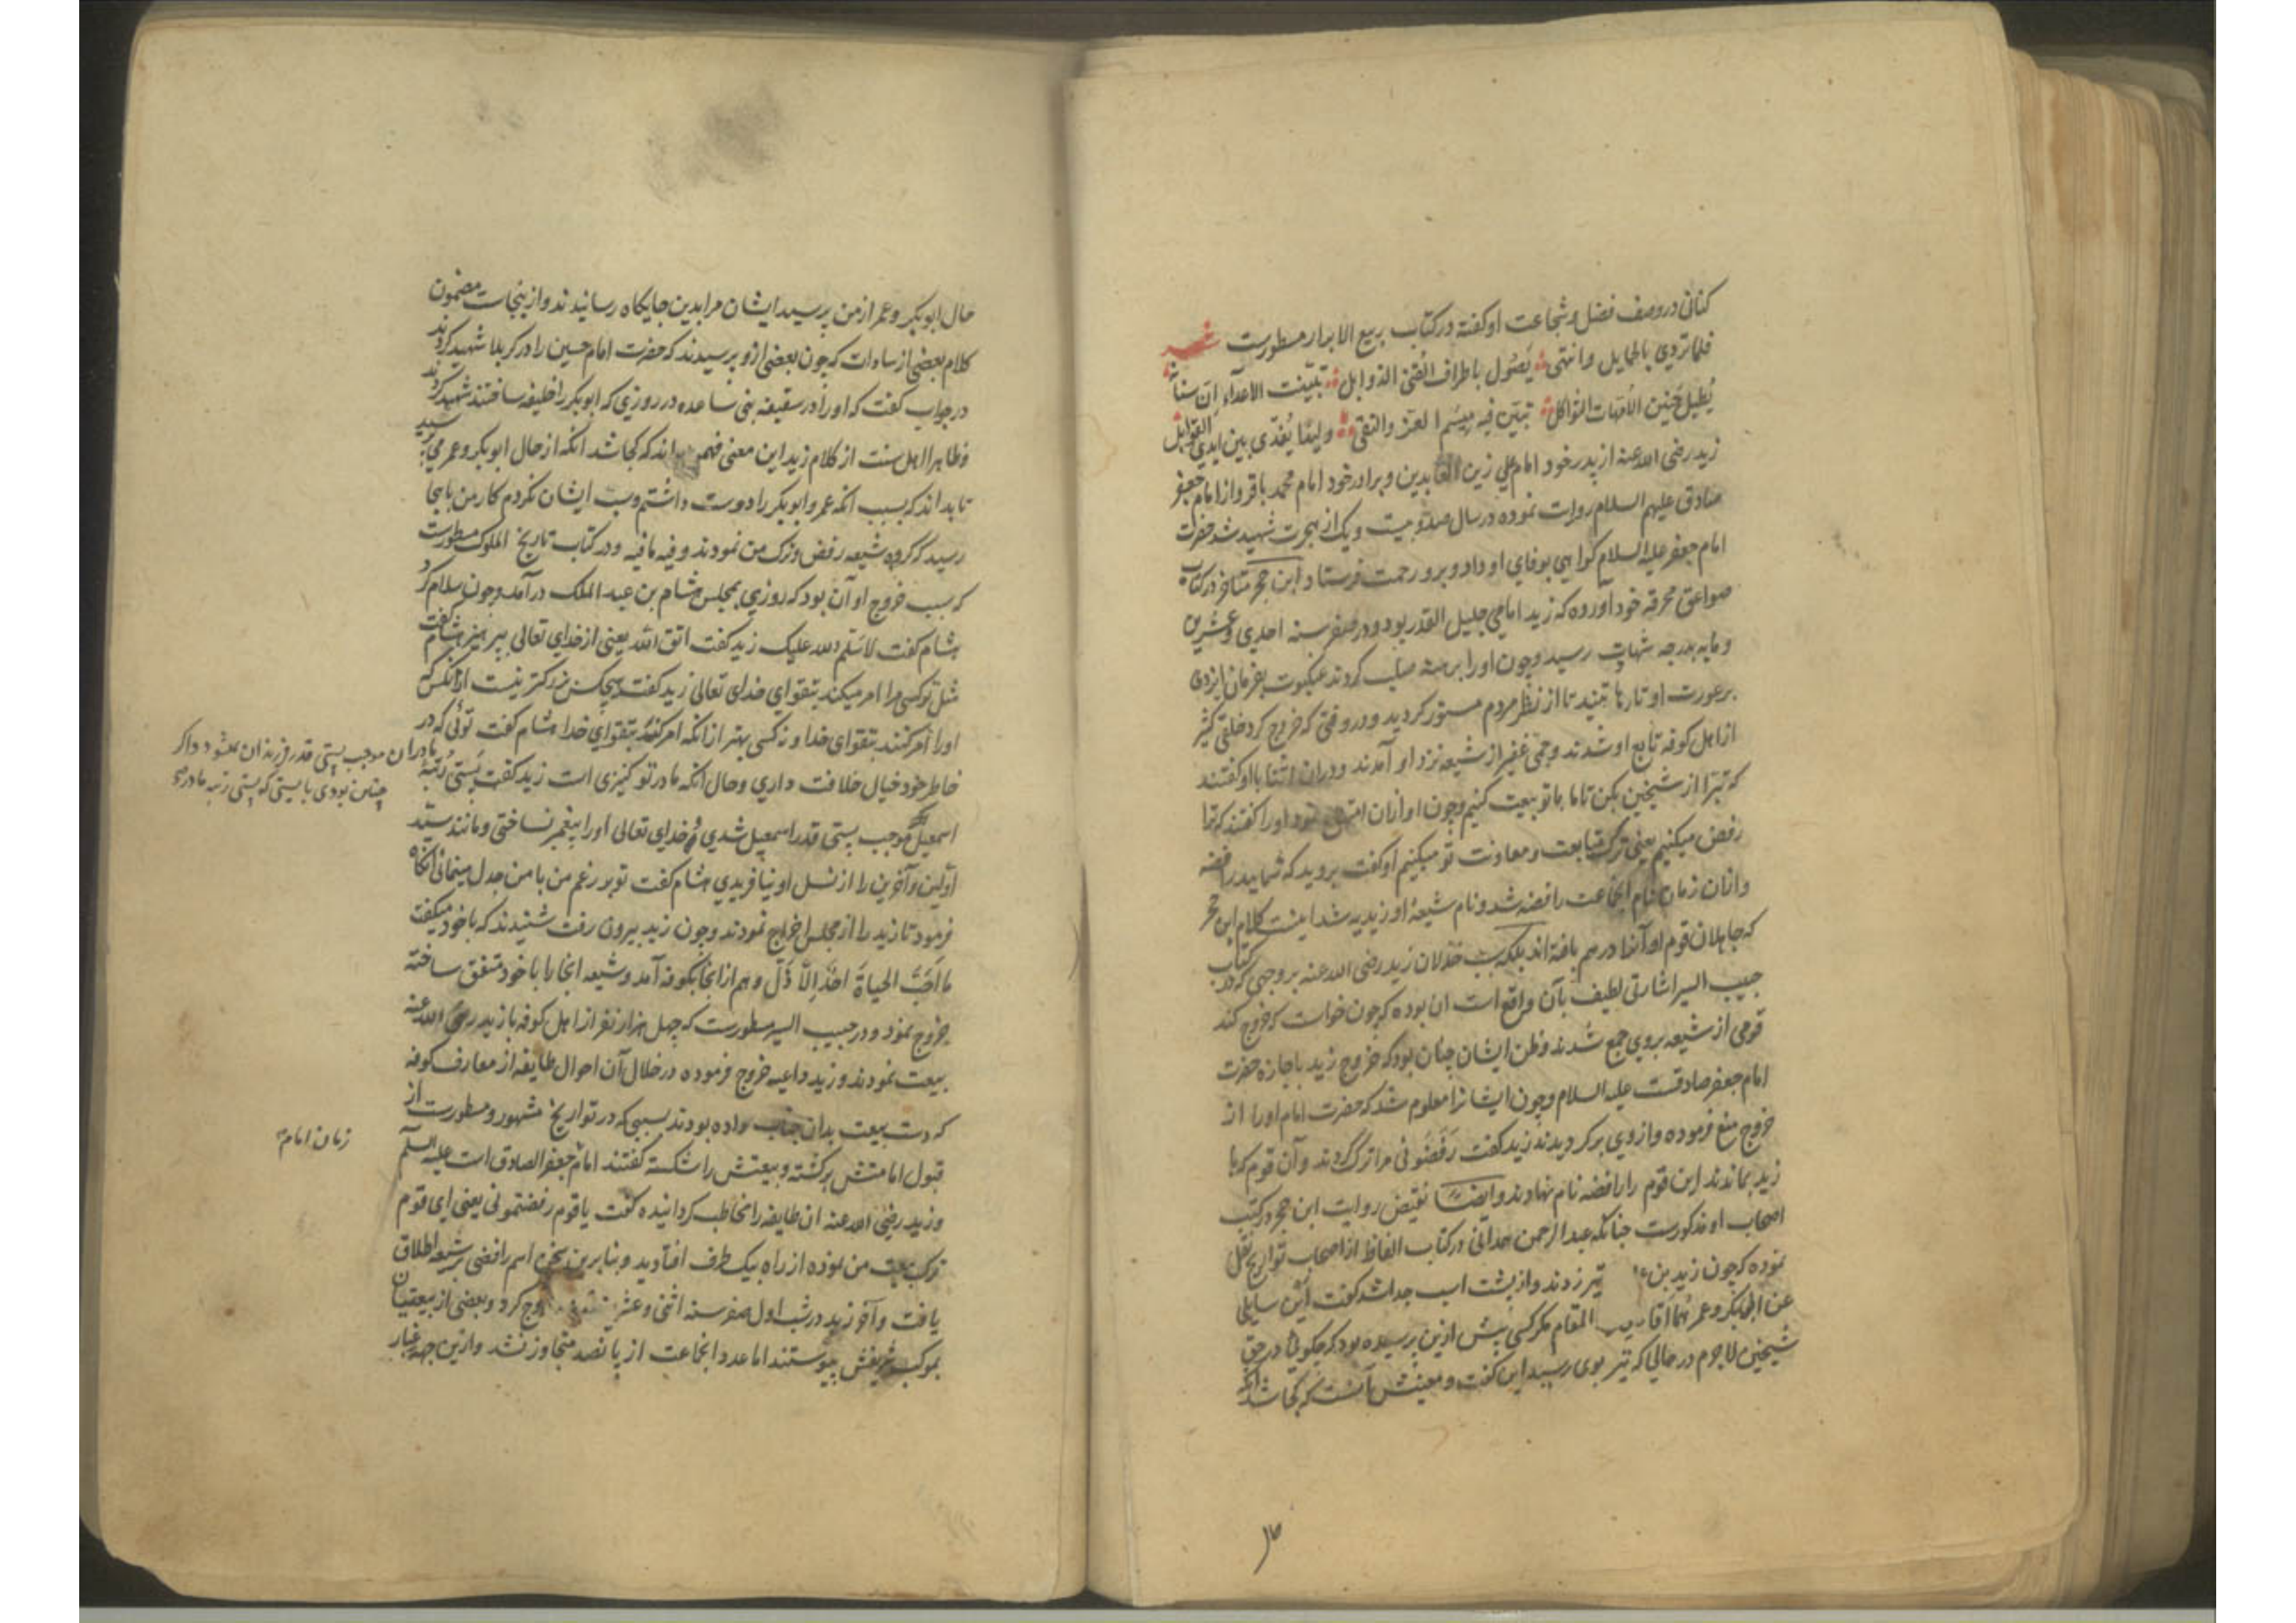 کنانی در وصف فضل و شجاعت او کفته در کتاب ربیع الابرار مسطورست شعر
فلما تردی بالحمایل وانتهی یَصُول باطراف القنی الذوابل تبیّنت الاعدآء ان سنانه
یُطیل حَنین الاُمّهات الثواکل تبیّن فیه میسم العز والتقی ولیدًا یُفدّی بین ایدی القوابل
زید رضی الله عنه از پدر خود امام علی زین العابدین و برادر خود امام محمد باقر و از امام جعفر
صادق علیهم السلام روات نموده در سال صد و بیست و یک از هجرت شهید شد حضرت
امام جعفر علیه السلام کواهی بوفای او داد و برو رحمت فرستاد ابن حجر متاخر در کتاب
صواعق محرقه خود آورده که زید امامی جلیل القدر بود و در صفر سنه احدی و عشرین
و مایه بدرجه شهادت رسید و چون اورا برهنه صلب کردند عنکبوت بفرمان ایزدی
بر عورت او تارها تنید تا از نظر مردم مستور کردید و در وقتی که خروج کرد خلقی کثیر
از اهل کوفه تابع او شدند و جمی غفیر از شیعه نزد او آمدند و در ان اثنا با او کفتند
که تبرّا از شیخین بکن تا ما با تو بیعت کنیم و چون او ازان امتناع نمود اورا کفتند که ترا
رفض میکنیم یعنی ترک متابعت و معاونت تو میکنیم او کفت بروید که شمایید رافضه
و ازان زمان نام انجماعت رافضه شد و نام شیعهٔ او زیدیه شد اینست کلام ابن حجر
که جاهلان قوم او آنرا درهم بافته اند بلکه سبب خذلان زید رضی الله عنه بر وجهی که در کتاب
حبیب السیر اشارتی لطیف بآن واقع است ان بوده که چون خواست که خروج کند
قومی از شیعه بروی جمع شدند و ظن ایشان چنان بود که خروج زید باجازه حضرت
امام جعفر صادقست علیه السلام و چون ایشانرا معلوم شد که حضرت امام اورا از
خروج منع فرموده و از وی برکردیدند زید کفت رَفَضُونی مرا ترک کردند و آن قوم که با
زید بماندند این قوم را رافضه نام نهادند و ایضا نقیض روایت ابن حجر در کتب
اصحاب او مذکورست چنانکه عبد الرحمن همدانی در کتاب الفاظ از اصحاب تواریخ نقل
نموده که چون زید بن تیر زدند و از پشت اسب جدا شد کفت این سایلی
عن ابی بکر و عمر هما اقا المقام مکر کسی پیش ازین پرسیده بود که چکوئی در حق
شیخین لاجرم در حالی که تیر بوی رسید این کفت و معینش آنست که کجا شد آنکه
حال ابوبکر و عمر از من پرسید ایشان مرا بدین جایکاه رسانیدند و ازینجاست مضمون
کلام بعضی از سادات که چون بعضی ازو پرسیدند که حضرت امام حسین را در کربلا شهید کردند
در جواب کفت که اورا در سقیفه بنی ساعده در روزی که ابوبکر را خلیفه ساختند شهید کردند
و ظاهرا اهل سنت از کلام زید این معنی فهم اند که کجا شد آنکه از حال ابوبکر و عمر می پرسید
تا بداند که بسبب انکه عمر و ابوبکر را دوست داشتم و سب ایشان نکردم کار من باینجا
رسید که کروه شیعه رفض و ترک من نمودند و فیه ما فیه و در کتاب تاریخ الملوک مسطورست
که سبب خروج او آن بود که روزی بمجلس هشام بن عبد الملک در آمد و چون سلام کرد
هشام کفت لا سَلّم الله علیک زید کفت اتق الله یعنی از خدای تعالی بپرهیز هشام کفت
مثل تو کسی مرا امر میکند بتقوای خدای تعالی زید کفت هیچکس بزرکتر نیست از انکس که
اورا امر کنند بتقوای خدا و نه کسی بهتر از انکه امر کند بتقوای خدا هشام کفت توئی که در
خاطر خود خیال خلافت داری و حال انکه مادر تو کنیزی است زید کفت پَستی رُتبهٔ
مادران موجب پستی قدر فرزندان نمیشود و اکر
چنین بودی بایستی که پستی رتبه مادر
اسمعیل موجب پستی قدر اسمعیل شدی و خدای تعالی اورا پیغمبر نساختی و مانند سیّد
اوّلین و آخرین را از نسل او نیافریدی هشام کفت تو بر زعم من با من جدل مینمائی انکاه
فرمود تا زید را از مجلس اخراج نمودند و چون زید بیرون رفت شنیدند که با خود میکفت
ما اَحَبَّ الحیاةَ احَدٌ اِلّا ذَلّ و هم از انجا بکوفه آمد و شیعه انجا را با خود متفق ساخته
خروج نمود و در حبیب السیر مسطورست که چهل هزار نفر از اهل کوفه با زید رضی الله عنه
بیعت نمودند و زید داعیه خروج فرموده در خلال آن احوال طایفه از معارف کوفه
که دست بیعت بدان جناب داده بودند بسببی که در تواریخ مشهور و مسطورست از
قبول امامتش برکشته و بیعتش را شکسته کفتند امام جعفر الصادق است علیه السلم
زمان امام
و زید رضی الله عنه ان طایفه را مخاطب کردانیده کفت یا قوم رفضتمونی یعنی ای قوم
ترک بیعت من نموده از راه بیک طرف افتادید و بنابرین سخن اسم رافضی بر شیعه اطلاق
یافت و آخر زید در شب اول صفر سنه اثنی و عشرین خروج کرد و بعضی از بیعتیان
بموکب شریفش پیوستند اما عدد انجماعت از پانصد متجاوز نشد و ازین جهه غبار